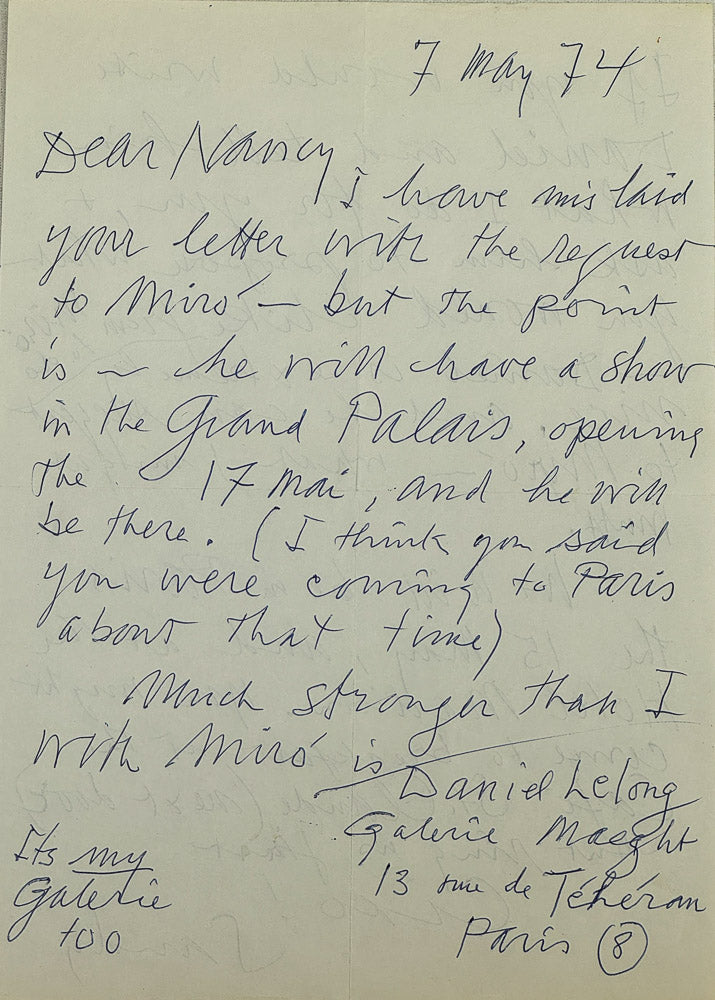 7 May 74
Dear Nancy
I have mislaid
your letter with the request
to Miró — but the point
is — he will have a show
in the Grand Palais, opening
the 17 Mai, and he will
be there. (I think you said
you were coming to Paris
about that time)
Much stronger than I
with Miró is Daniel Lelong
Galerie Maeght
13 rue de Téhéran
Paris (8)
Its my
Galerie
too